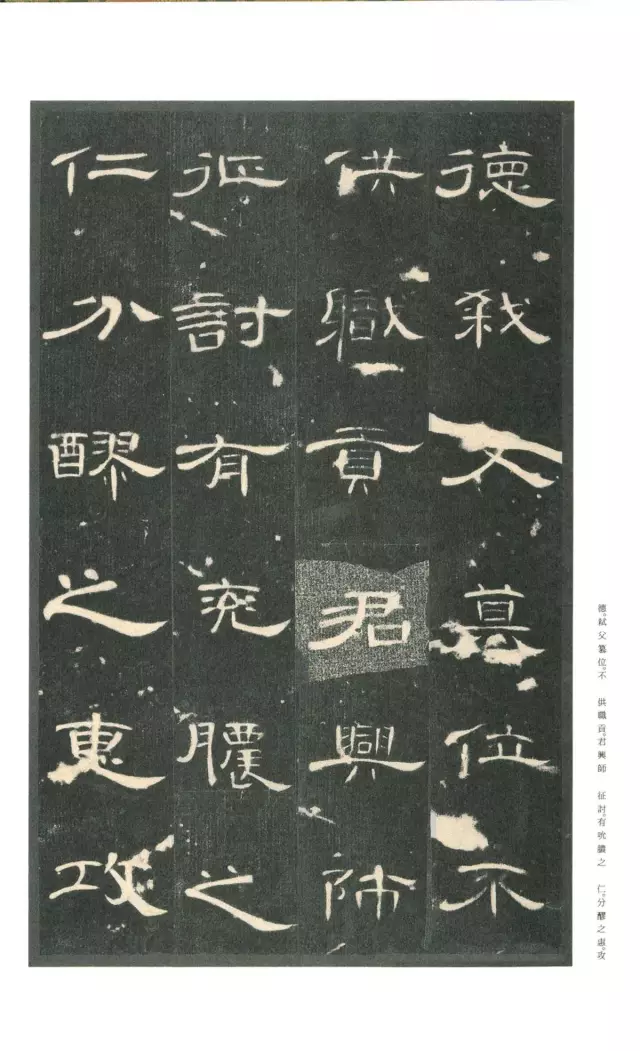 德弑父篡位不
供職貢君興師
征討有兗膿之
仁分醪之惠攻
德。弑父篡位。不　供職貢。君興師　征討。有吮膿之　仁。分醪之惠。攻